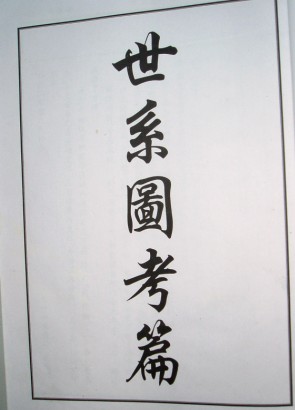 世系圖考篇